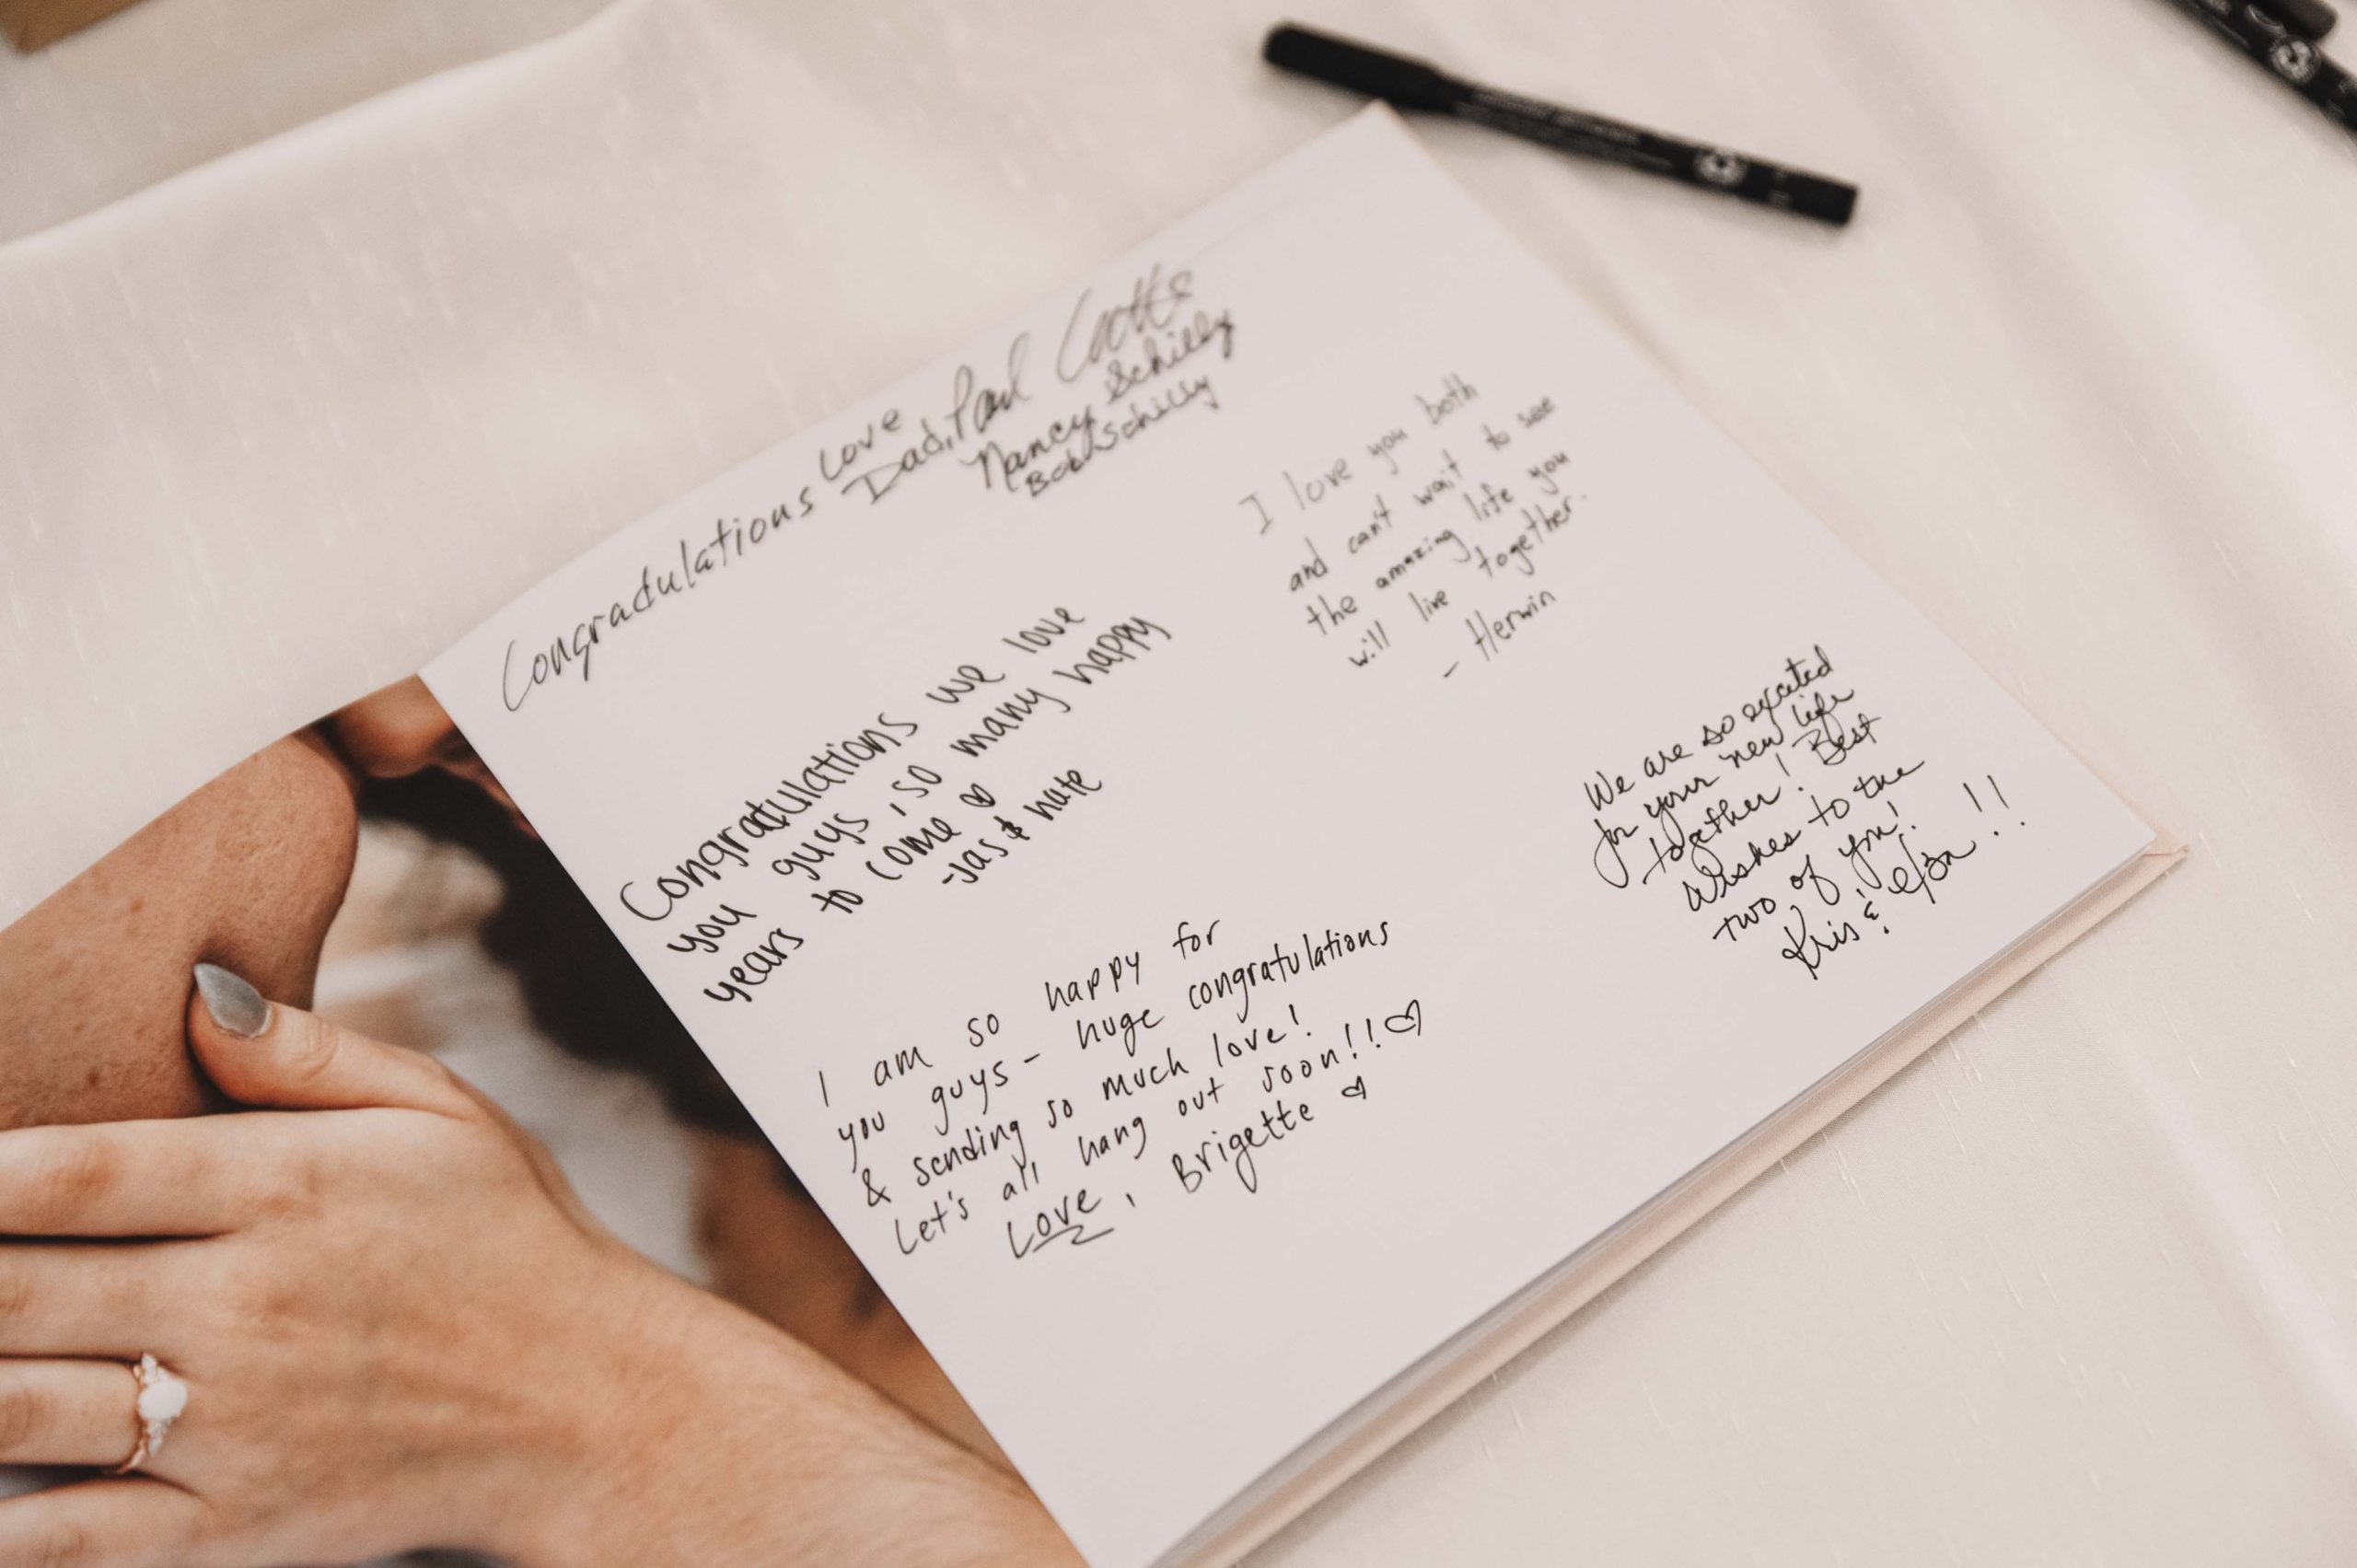 Congradulations Love
Dad, Paul
Nancy Schilly
Bob Schilly
I love you both
and can't wait to see
the amazing life you
will live together.
- Herwin
Congratulations we love
you guys, so many happy
years to come ♡
-Jas & Nate
We are so excited
for your new life
together! Best
wishes to the
two of you!
Kris & !!
I am so happy for
you guys - huge congratulations
& sending so much love!
Let's all hang out soon!! ♡
Love, Brigette ♡